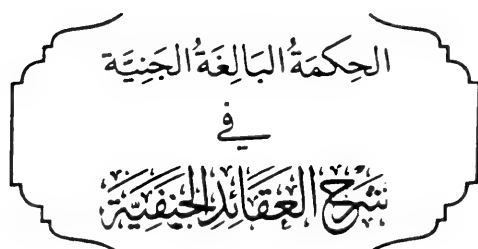 الحِكمَةُ البَالِغَةُ الجَنِيَّة
في
شَرْحُ العَقَائِدِ الحَنِيفِيَّة